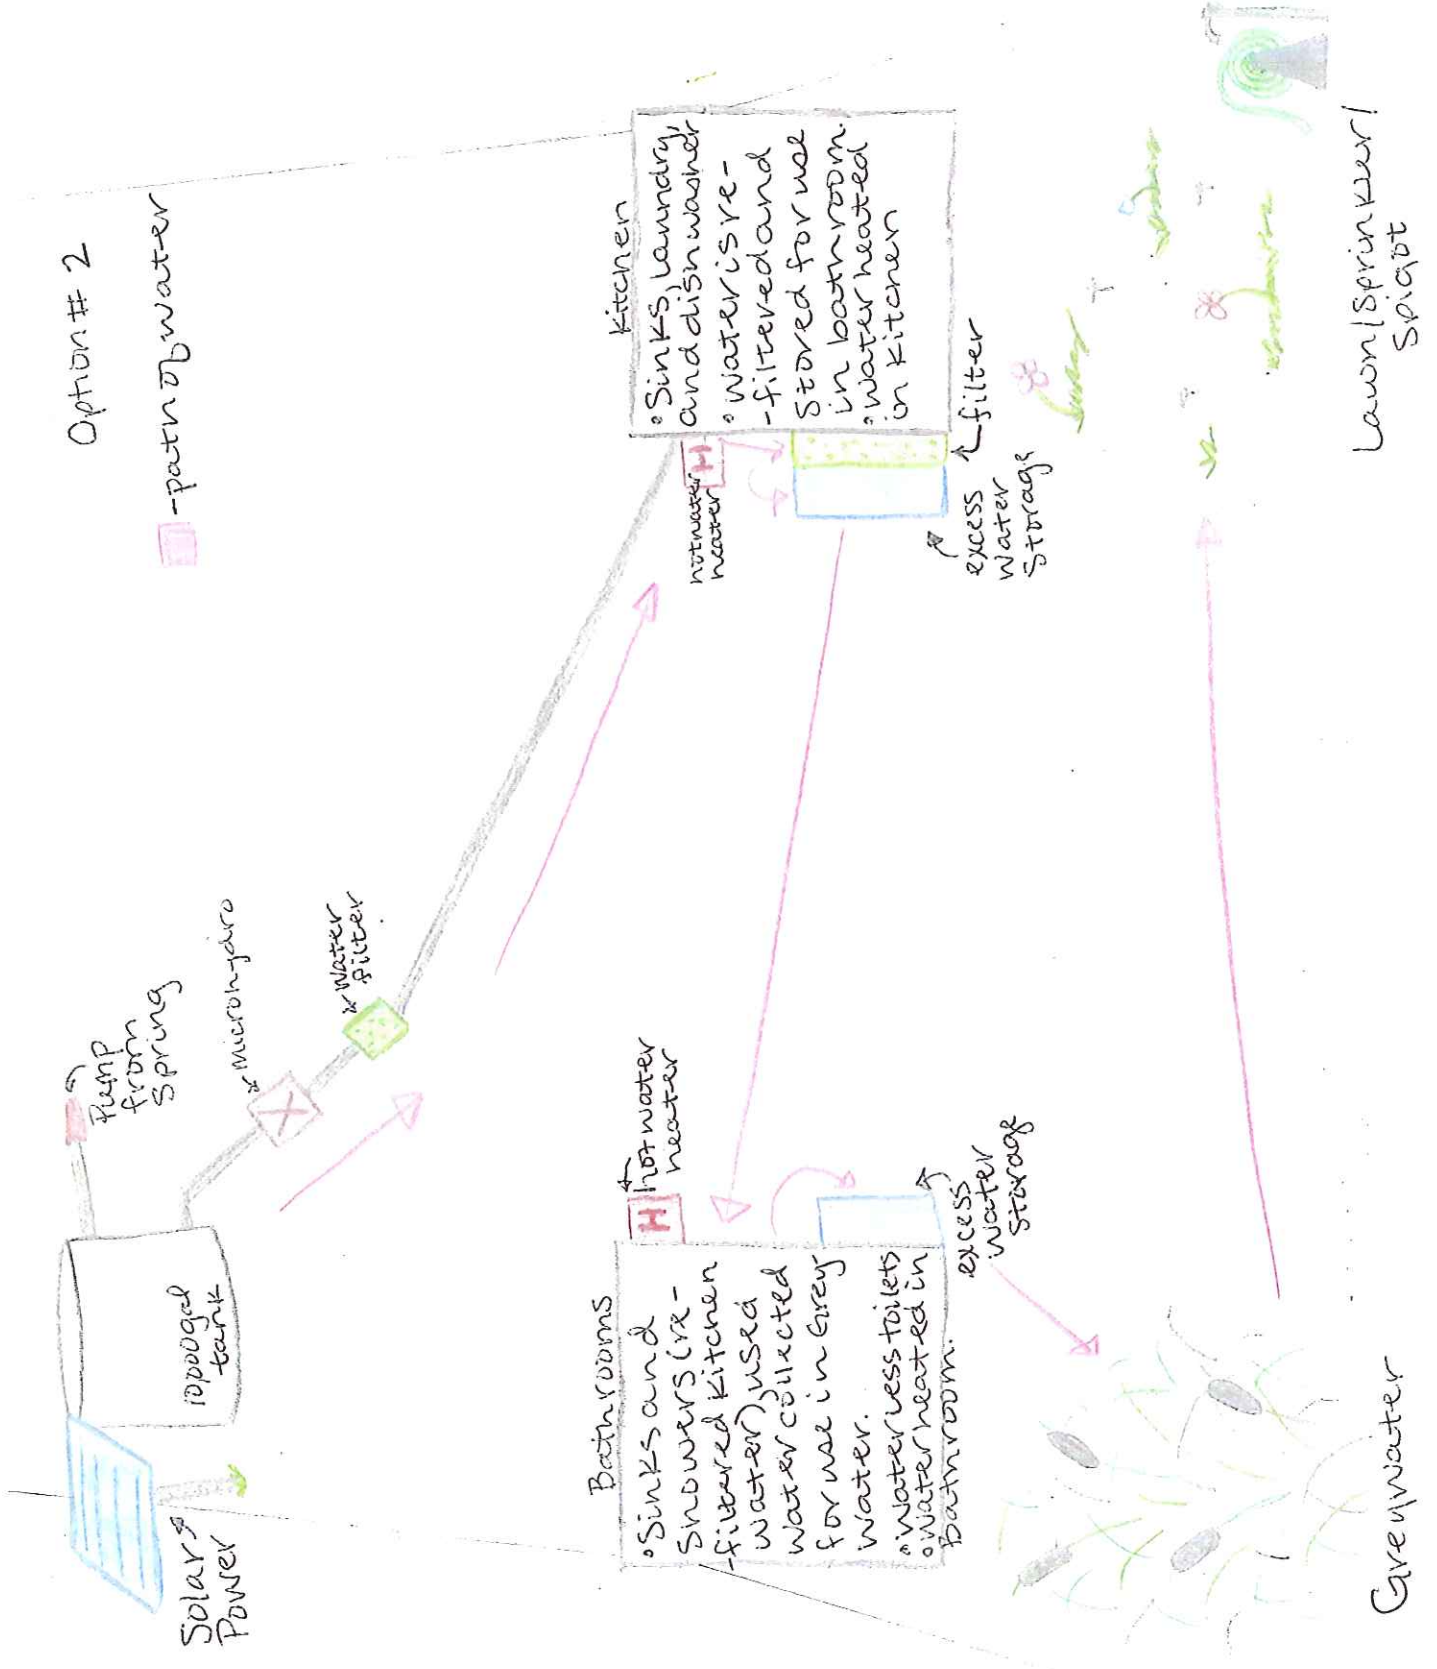 Option # 2
-path of water
Pump
from
Spring
microhydro
water
filter
10,000gal
tank
Solar
Power
Kitchen
• Sinks, laundry,
and dishwasher
• water is re-
-filtered and
Stored for use
in bathroom.
• water heated
in kitchen
H
hotwater
heater
filter
excess
water
Storage
Bathrooms
• Sinks and
Showers (re-
-filtered kitchen
water), used
water collected
for use in Grey
water.
• waterless toilets
• water heated in
Bathroom.
H
hotwater
heater
excess
water
Storage
Greywater
Lawn/Sprinkler/
Spigot